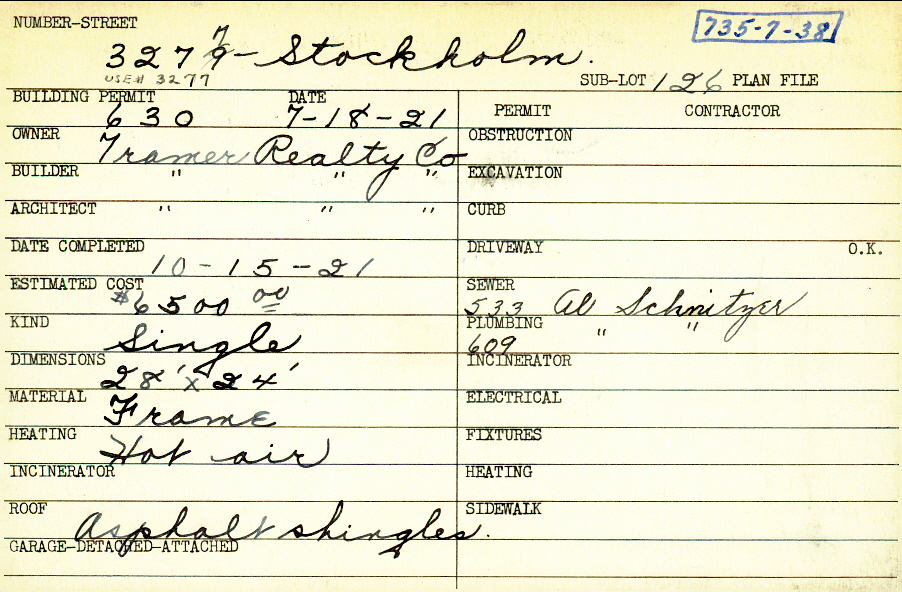 NUMBER-STREET
735-7-38
7
3279- Stockholm.
USE# 3277
SUB-LOT 126 PLAN FILE
BUILDING PERMIT DATE
630 7-18-21
PERMIT CONTRACTOR
OWNER Tramer Realty Co
OBSTRUCTION
BUILDER " " "
EXCAVATION
ARCHITECT " " "
CURB
DATE COMPLETED
10-15-21
DRIVEWAY O.K.
ESTIMATED COST
$6500 00
SEWER
533 Al Schnitzer
KIND
Single
PLUMBING " "
609
DIMENSIONS
28' x 24'
INCINERATOR
MATERIAL Frame
ELECTRICAL
HEATING
Hot air
FIXTURES
INCINERATOR
HEATING
ROOF Asphalt shingles.
SIDEWALK
GARAGE-DETACHED-ATTACHED